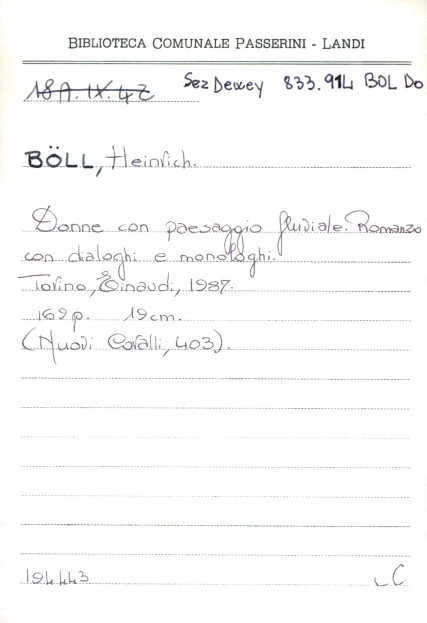 BIBLIOTECA COMUNALE PASSERINI - LANDI
18A.IX.47 Sez Dewey 833.914 BOL Do
BÖLL, Heinrich.
Donne con paesaggio fluviale. Romanzo
con dialoghi e monologhi.
Torino, Einaudi, 1987.
169p. 19cm.
(Nuovi Coralli, 403).
194443 C